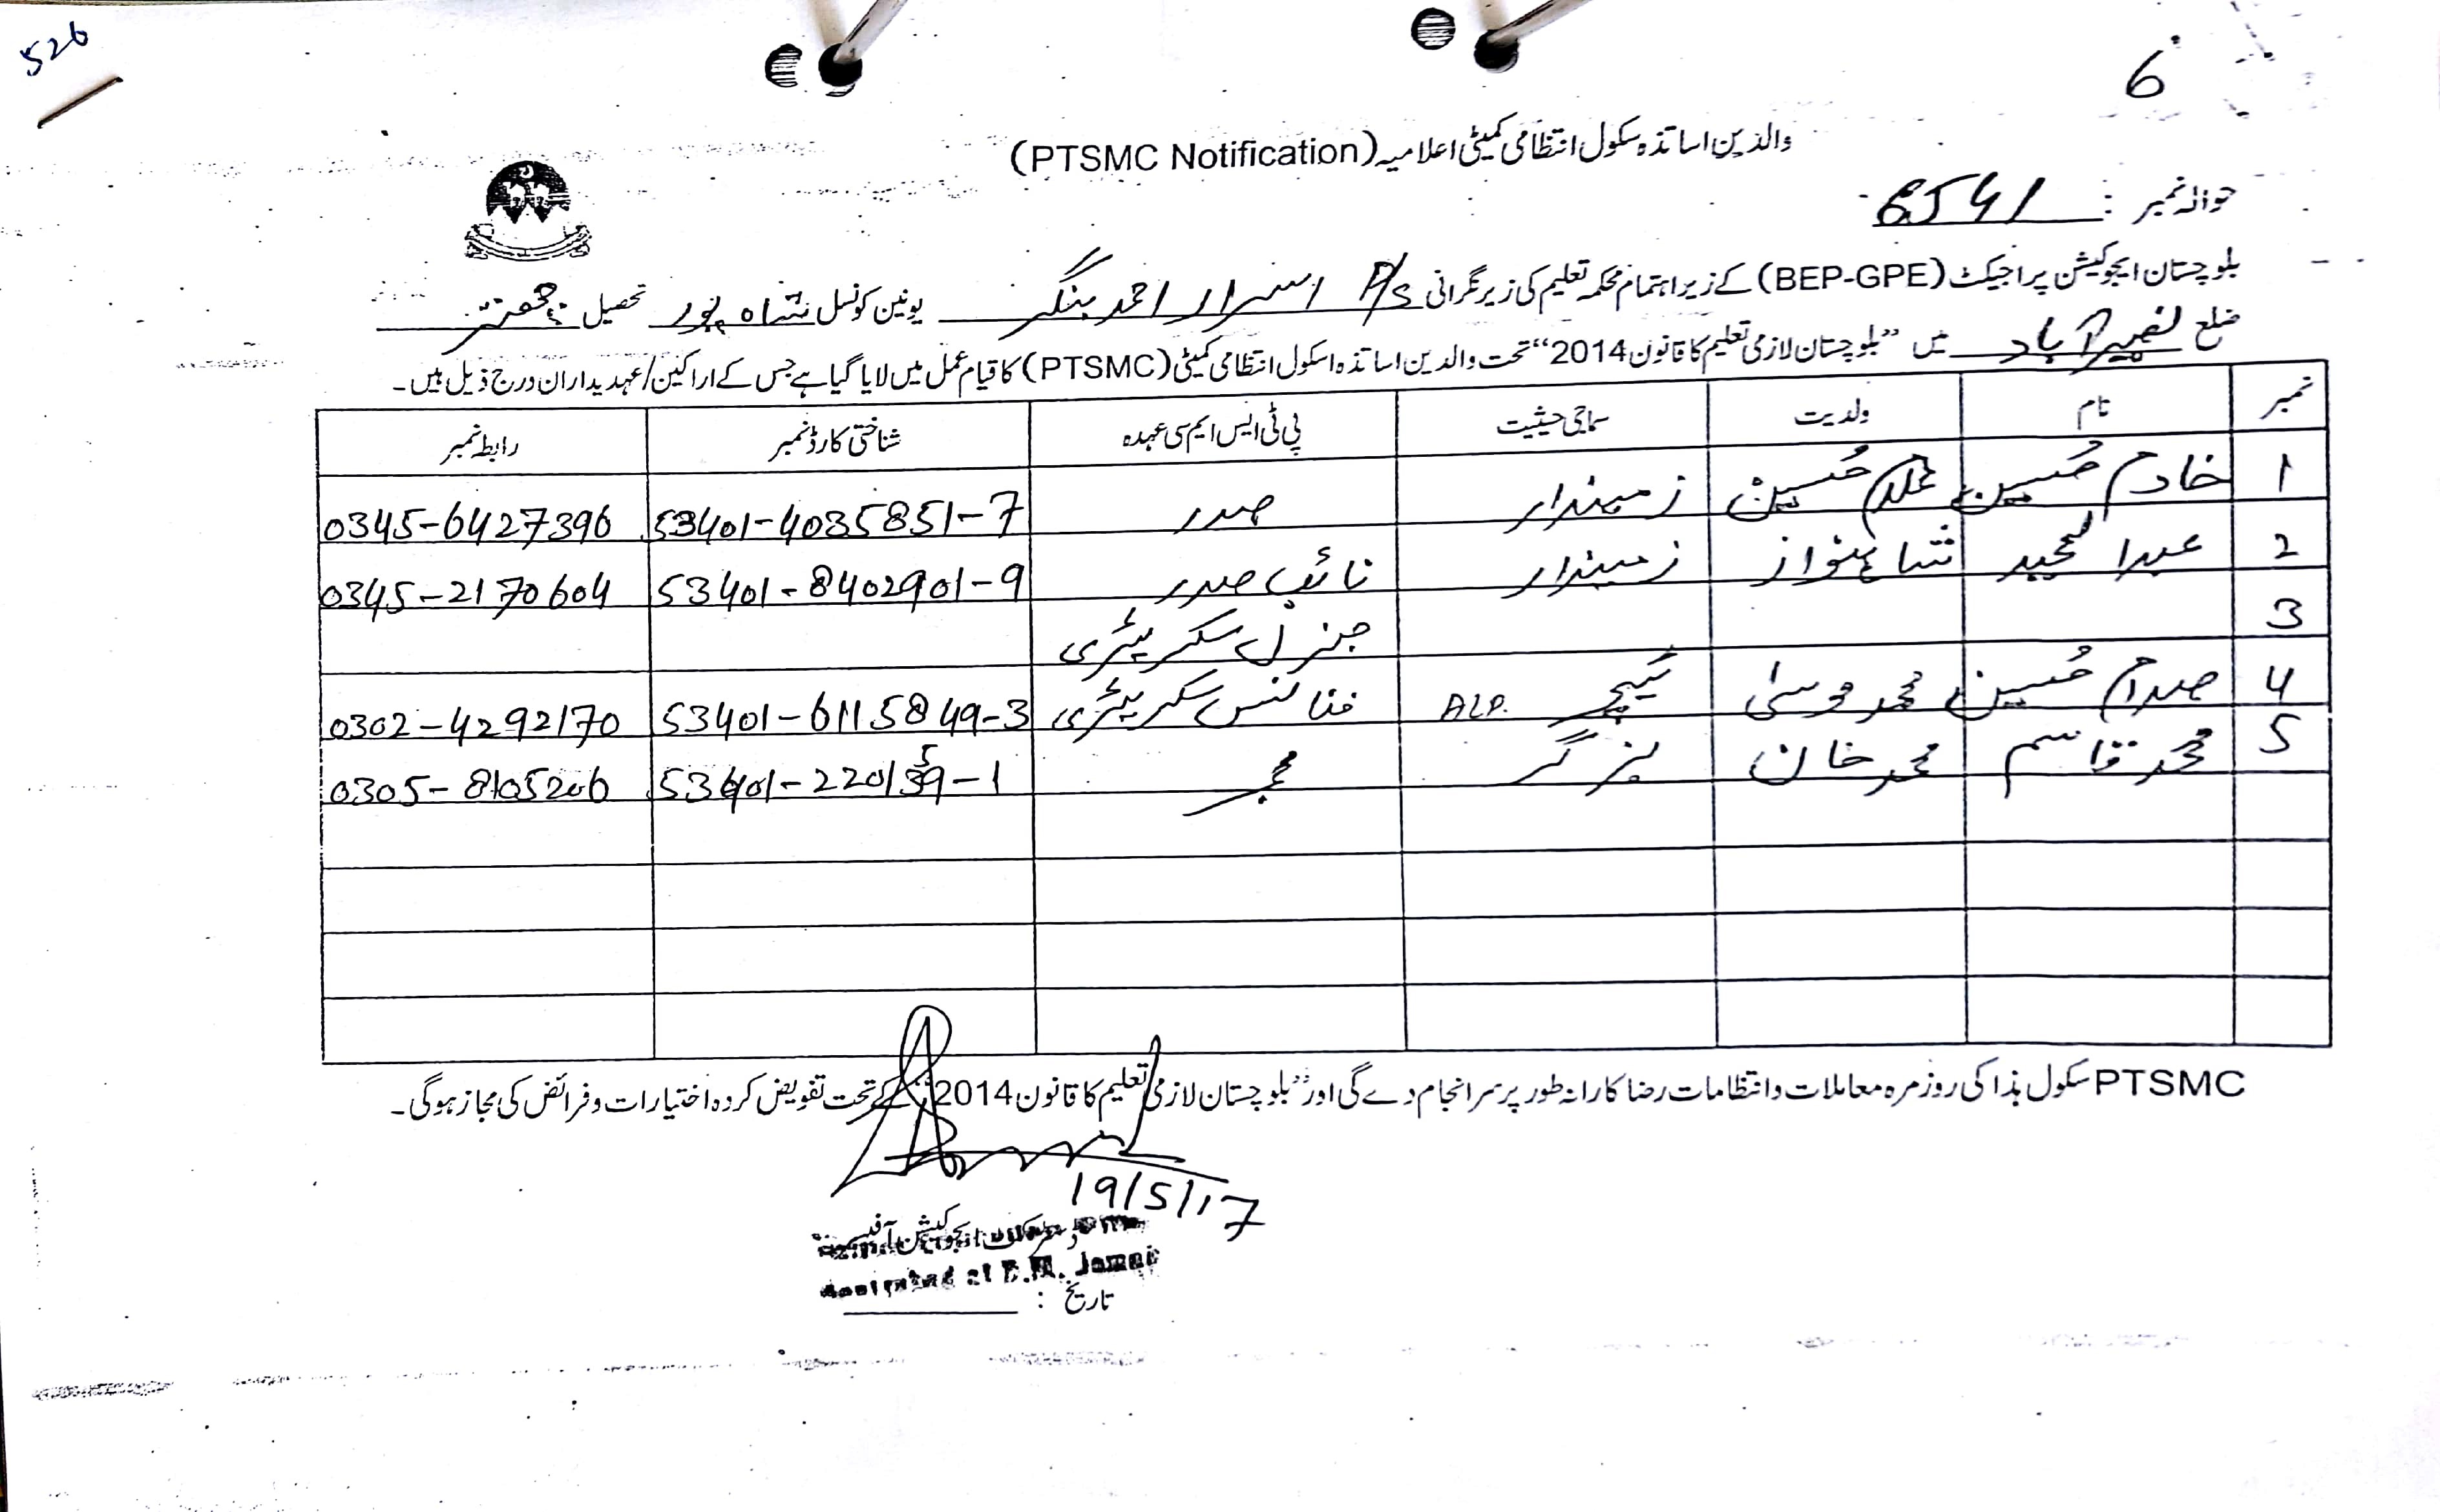 526
6
والدین اساتذہ سکول انتظامی کمیٹی اعلامیہ (PTSMC Notification)
حوالہ نمبر : 6541
بلوچستان ایجوکیشن پراجیکٹ (BEP-GPE) کے زیر اہتمام محکمہ تعلیم کی زیر نگرانی P/s اسرار احمد بنگر یونین کونسل شاہ پور تحصیل چھتر
ضلع نصیر آباد میں ”بلوچستان لازمی تعلیم کا قانون 2014“ تحت والدین اساتذہ اسکول انتظامی کمیٹی (PTSMC) کا قیام عمل میں لایا گیا ہے جس کے اراکین/عہدیداران درج ذیل ہیں۔
نمبر نام ولدیت سماجی حیثیت پی ٹی ایس ایم سی عہدہ شناختی کارڈ نمبر رابطہ نمبر
1 خادم حسین غلام حسین زمیندار صدر 53401-4035851-7 0345-6427396
2 عبدالمجید شاہنواز زمیندار نائب صدر 53401-8402901-9 0345-2170604
3 جنرل سکریٹری
4 صدام حسین محمد موسیٰ ٹیچر ALP. فنانس سکریٹری 53401-6115849-3 0302-4292170
5 محمد قاسم محمد خان بزگر ممبر 53401-2201359-1 0305-8105206
PTSMC سکول ہذا کی روزمرہ معاملات و انتظامات رضا کارانہ طور پر سر انجام دے گی اور ”بلوچستان لازمی تعلیم کا قانون 2014“ کے تحت تفویض کردہ اختیارات و فرائض کی مجاز ہوگی۔
19/5/17
ڈسٹرکٹ ایجوکیشن آفیسر
at D.M. Jamali
تاریخ :